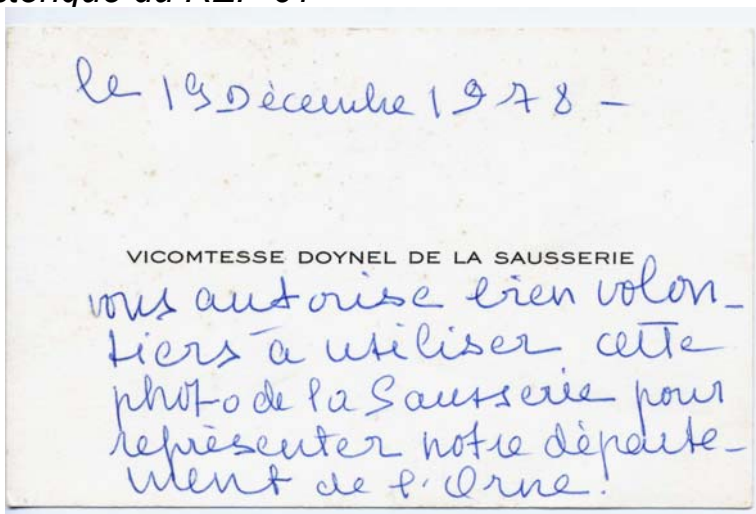 le 19 Décembre 1978 -
VICOMTESSE DOYNEL DE LA SAUSSERIE
vous autorise bien volon-
tiers à utiliser cette
photo de la Sausserie pour
représenter notre départe-
ment de l'Orne.